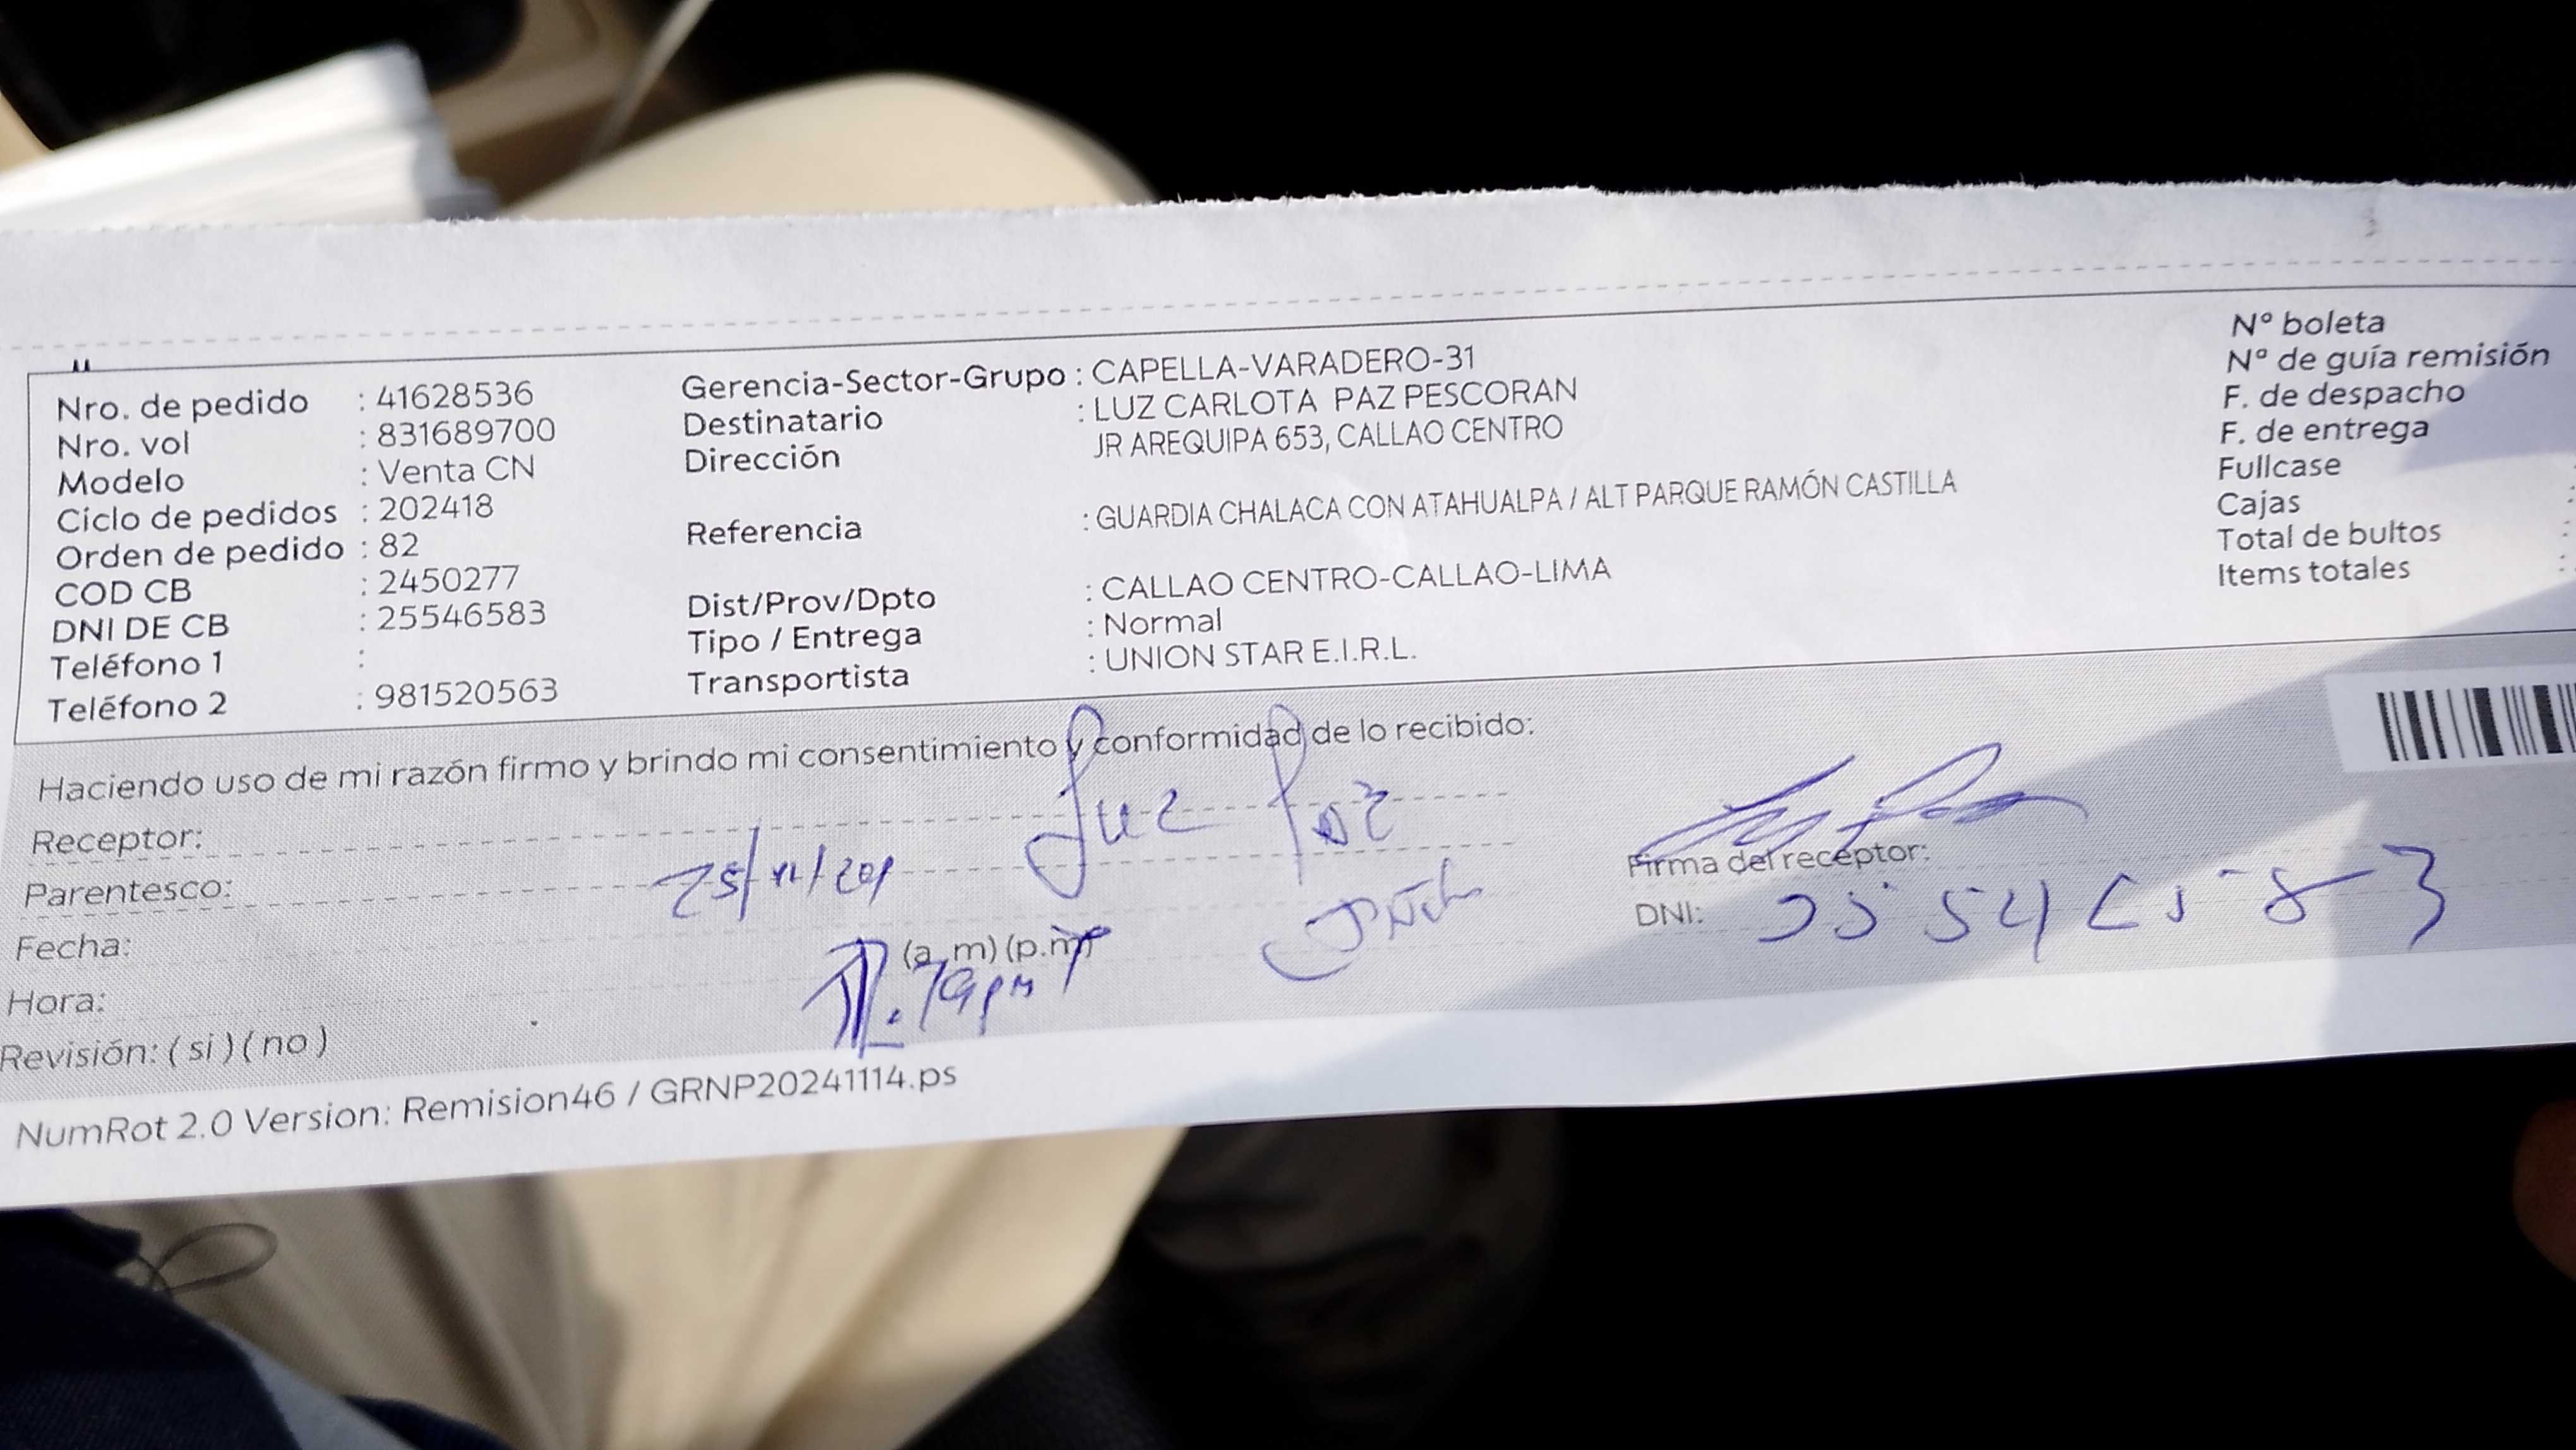 Nro. de pedido : 41628536
Nro. vol : 831689700
Modelo : Venta CN
Ciclo de pedidos : 202418
Orden de pedido : 82
COD CB : 2450277
DNI DE CB : 25546583
Teléfono 1 :
Teléfono 2 : 981520563
Gerencia-Sector-Grupo : CAPELLA-VARADERO-31
Destinatario : LUZ CARLOTA PAZ PESCORAN
Dirección JR AREQUIPA 653, CALLAO CENTRO
Referencia : GUARDIA CHALACA CON ATAHUALPA / ALT PARQUE RAMÓN CASTILLA
Dist/Prov/Dpto : CALLAO CENTRO-CALLAO-LIMA
Tipo / Entrega : Normal
Transportista : UNION STAR E.I.R.L.
N° boleta
N° de guía remisión
F. de despacho
F. de entrega
Fullcase
Cajas
Total de bultos :
Items totales :
Haciendo uso de mi razón firmo y brindo mi consentimiento y conformidad de lo recibido:
Receptor: Luz Paz
Parentesco:
Fecha:
Hora: (a.m) (p.m)
Revisión: ( si ) ( no )
Firma del receptor:
DNI:
NumRot 2.0 Version: Remision46 / GRNP20241114.ps